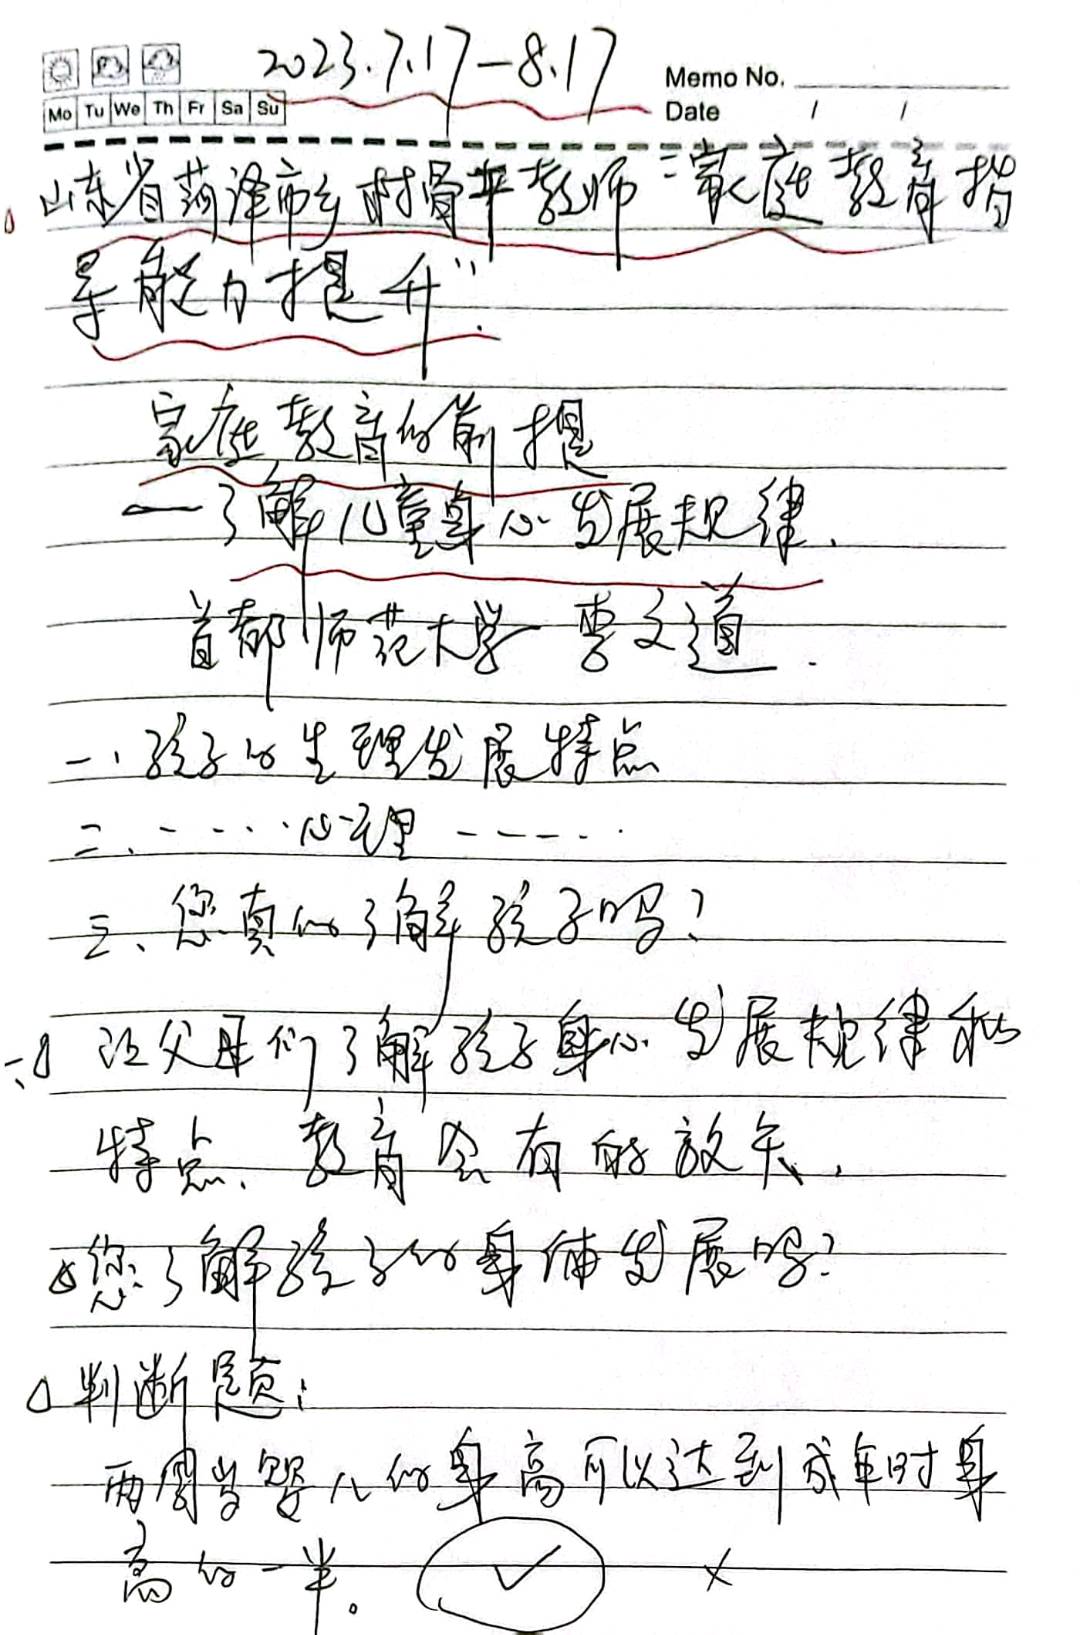 2023.7.17-8.17
Memo No.
Mo Tu We Th Fr Sa Su
Date / /
山东省菏泽市乡村骨干教师“家庭教育指
导能力提升”.
家庭教育的前提
—了解儿童身心发展规律.
首都师范大学 李文道.
一、孩子的生理发展特点
二、-····心理-----·
三、您真的了解孩子吗?
让父母们了解孩子身心发展规律和
特点、教育会有的放矢.
△您了解孩子的身体发展吗?
△判断题:
两周岁婴儿的身高可以达到成年时身
高的一半。 ✓ ×